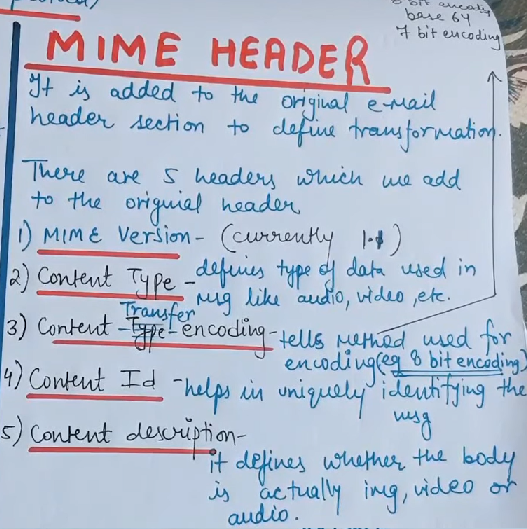 8 bit encoding
base 64
7 bit encoding
MIME HEADER
It is added to the original e-mail
header section to define transformation.
There are 5 headers which we add
to the origuial header
1) MIME Version - (currently 1.1)
2) Content Type - defines type of data used in
msg like audio, video, etc.
3) Content - Transfer - encoding - tells method used for
encoding (eg 8 bit encoding)
4) Content Id - helps in uniquely identifying the
msg
5) Content description -
it defines whether the body
is actually img, video or
audio.